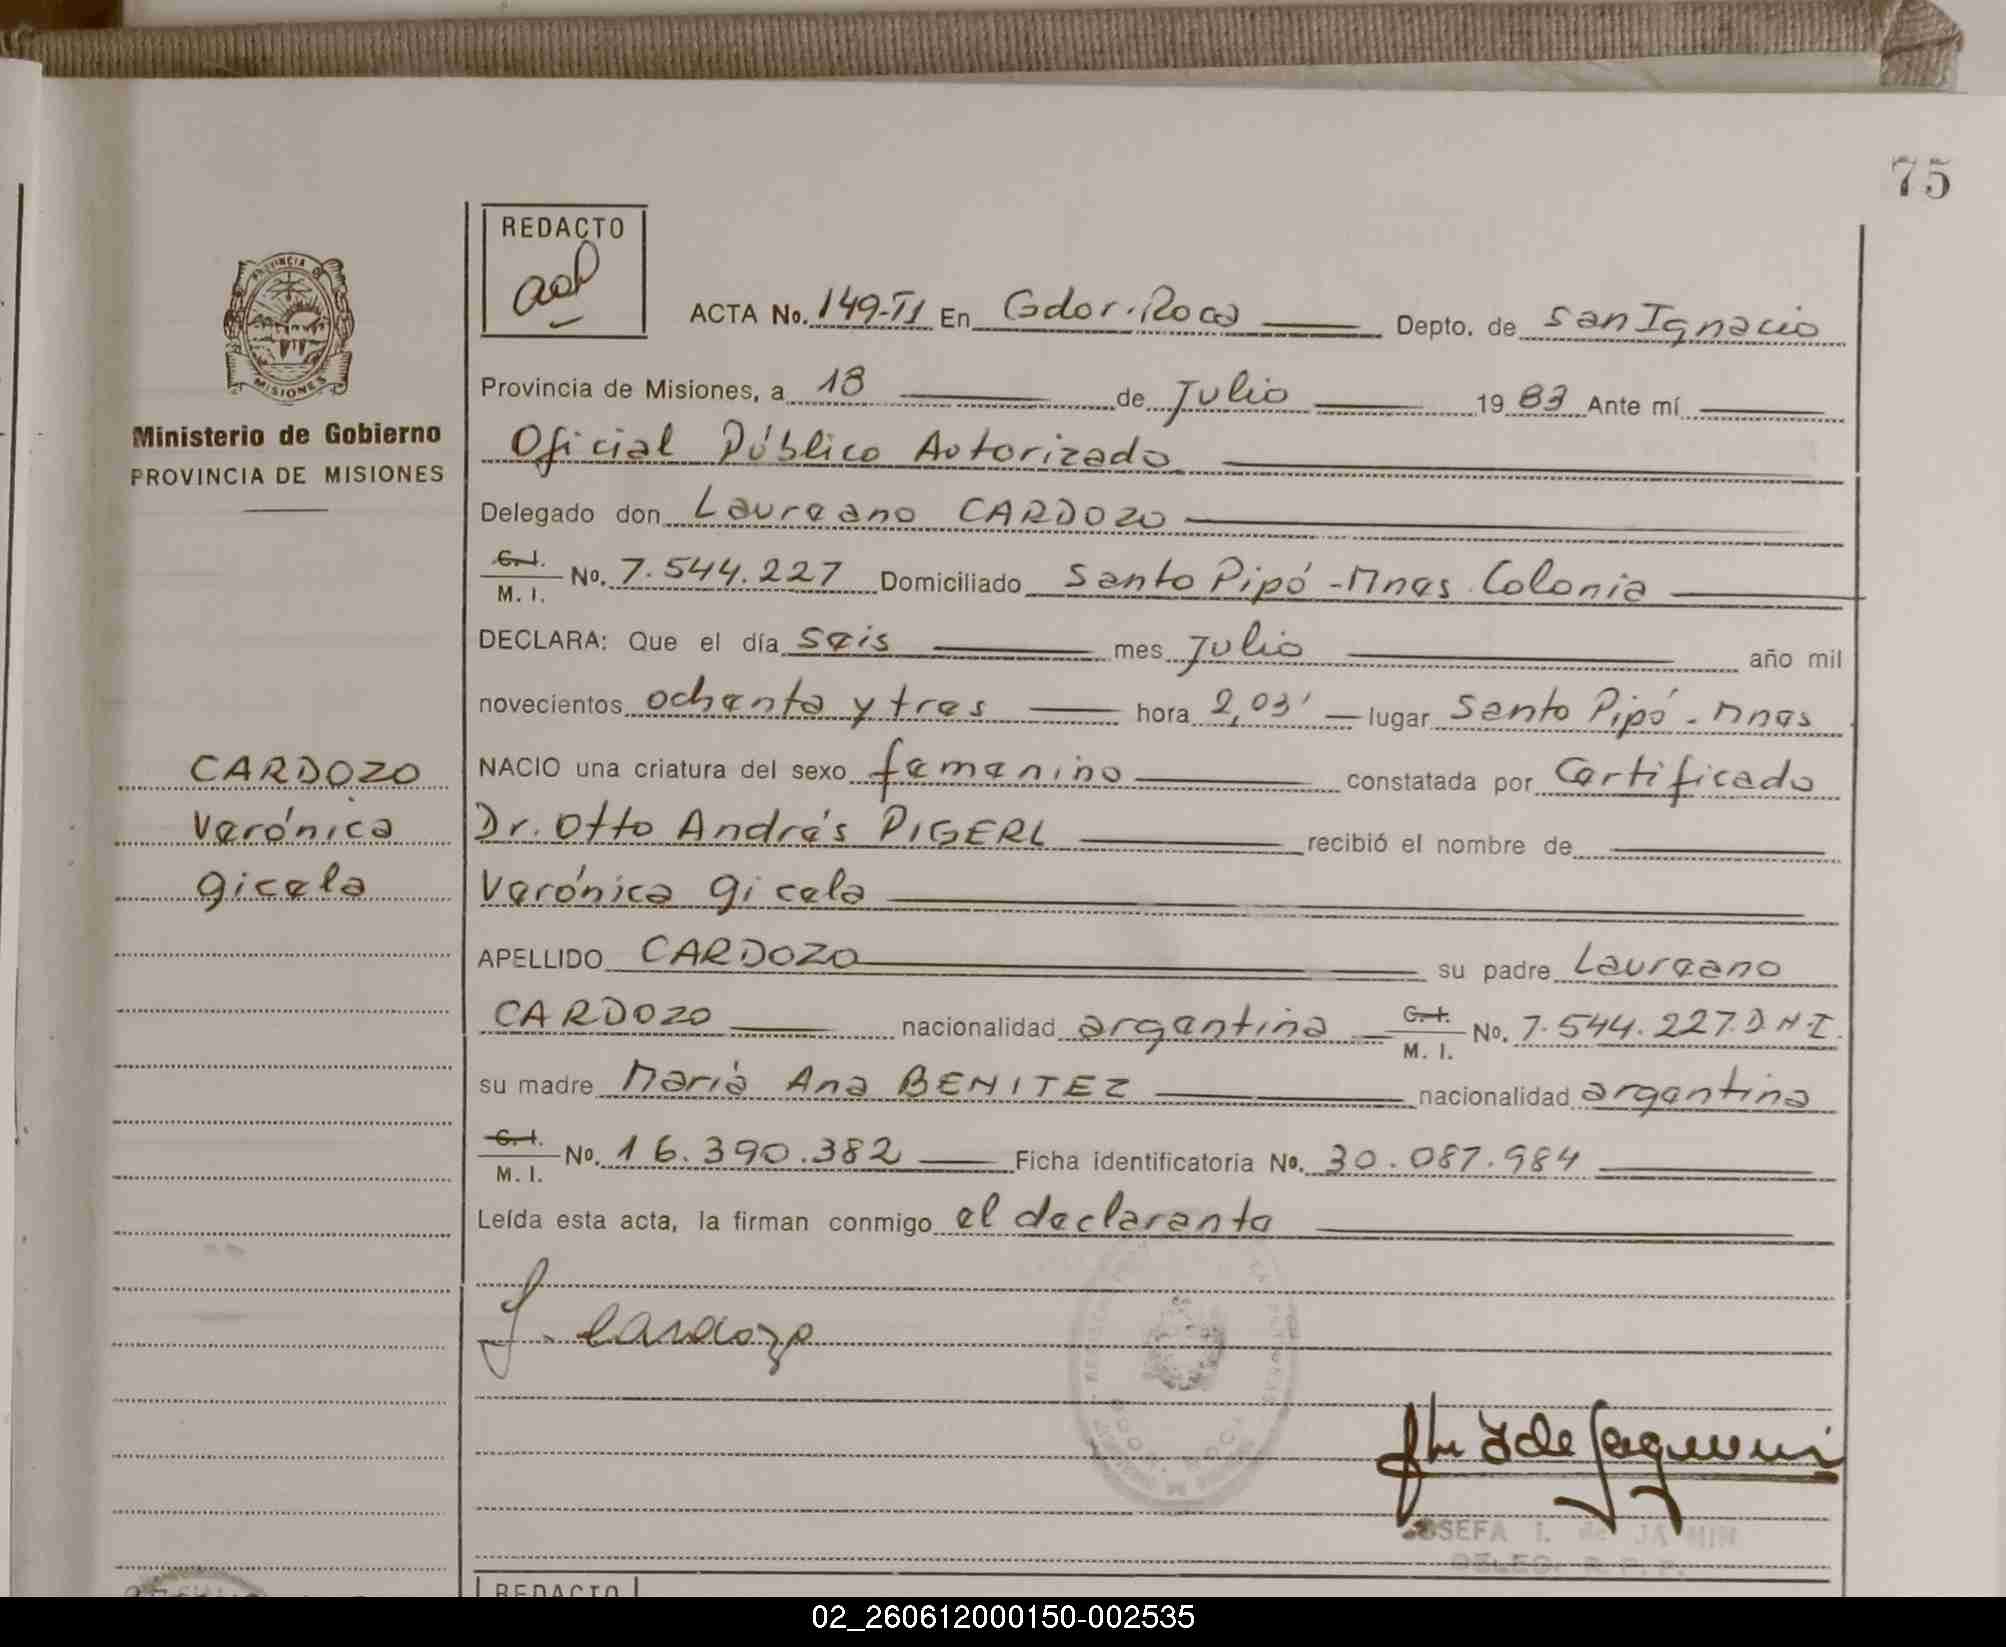 75
REDACTO
PROVINCIA DE
MISIONES
Ministerio de Gobierno
PROVINCIA DE MISIONES
ACTA No. 149-T1 En Gdor. Roca Depto. de San Ignacio
Provincia de Misiones, a 18 de Julio 1983 Ante mí
Oficial Público Autorizado
Delegado don Laureano CARDOZO
C. I.
M. I. No. 7.544.227 Domiciliado Santo Pipó - Mnes. Colonia
DECLARA: Que el día seis mes Julio año mil
novecientos ochenta y tres hora 2,03' lugar Santo Pipó - Mnes
CARDOZO
Verónica
Gicela
NACIO una criatura del sexo femenino constatada por Certificado
Dr. Otto Andrés PIGERL recibió el nombre de
Verónica Gicela
APELLIDO CARDOZO su padre Laureano
CARDOZO nacionalidad argentina C. I. M. I. No. 7.544.227. D N I.
su madre María Ana BENITEZ nacionalidad argentina
C. I.
M. I. No. 16.390.382 Ficha identificatoria No. 30.087.984
Leída esta acta, la firman conmigo el declarante
L. Cardozo
JOSEFA I. de
REDACTO
02_260612000150-002535